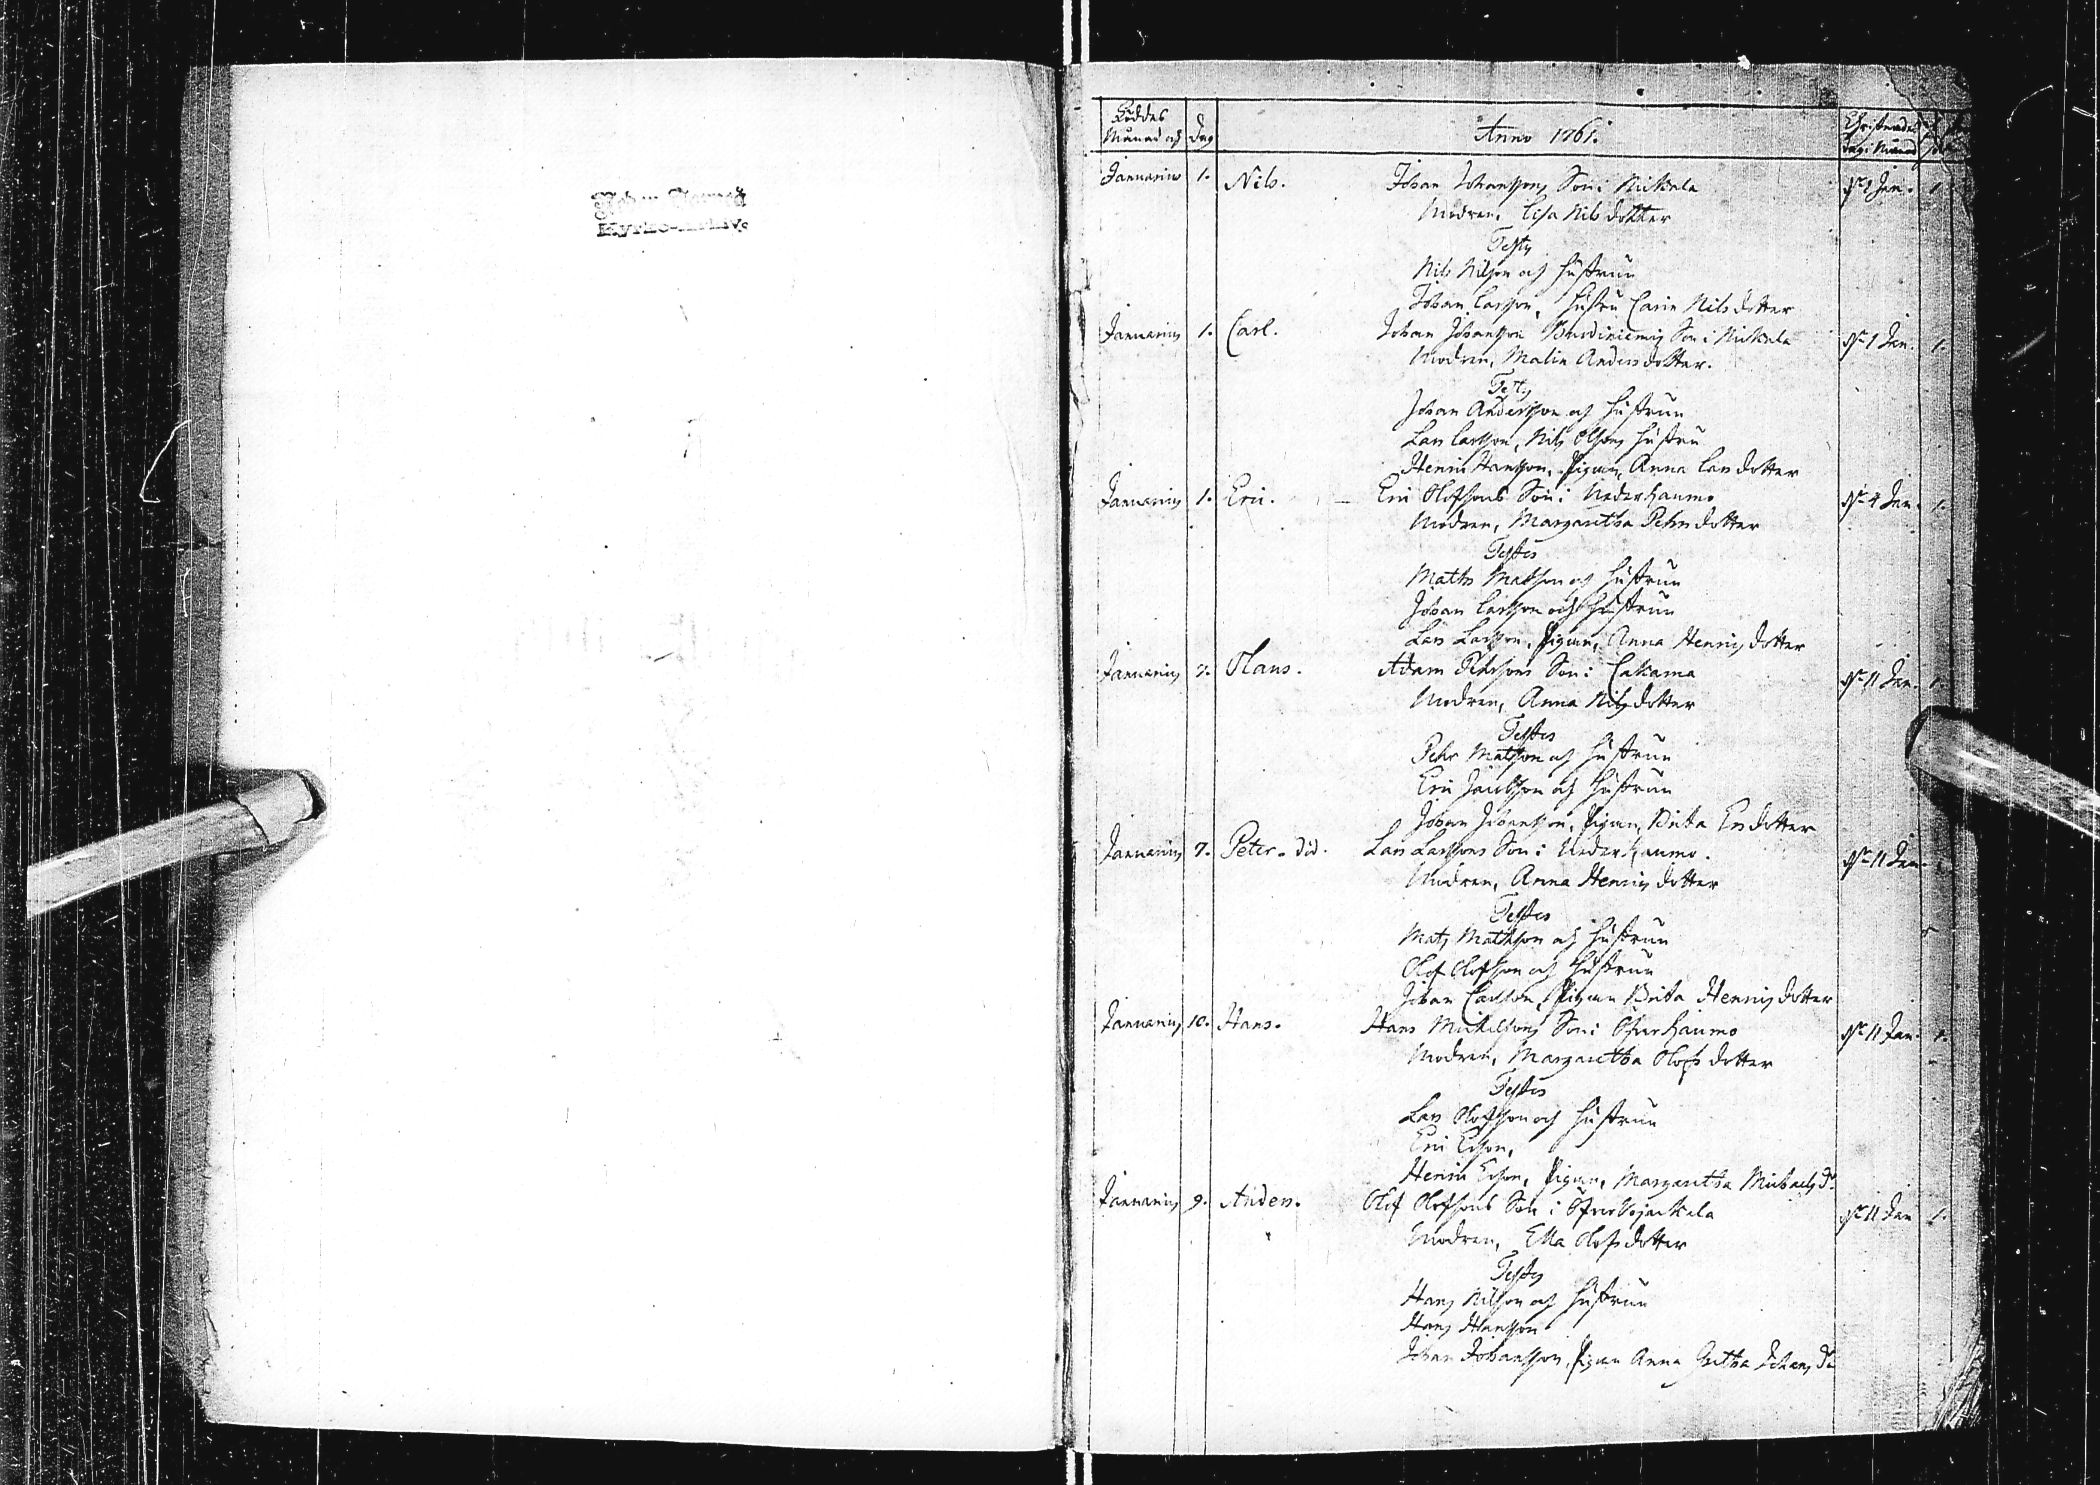 Kyrko-Arkiv.
Föddes Månad och Dag
Anno 1761.
Christendes Dag i Månad
Januarius 1. Nils. Johan Johanssons Son i Nickala d. 1.
Modren, Lisa Nils dotter
Testes
Nils Nilsson och hustrun
Johan Larsson, hustru Carin Nils dotter
Januarius 1. Carl. Johan Johansson Son i Nickala d. 1 Jan. 1.
Modren, Malin Anders dotter.
Testes
Johan Andersson och hustrun
Lars Larsson, Nils Olssons hustru
Henric Hansson, Pigan, Anna Lars dotter
Januarius 1. Eric. Eric Olofsons Son i Nederhaumo d. 4 Jan. 1.
Modren, Margaretha Pehrs dotter
Testes
Matts Matsson och hustrun
Johan Larsson och hustrun
Lars Larsson, Pigan, Anna Henrics dotter
Januarius Adam Pehrsons Son i d. 11 Jan. 1.
Modren, Anna Nils dotter
Testes
Pehr Matsson och hustrun
Eric Jacobsson och hustrun
Johan Johansson, Pigan, Brita Ers dotter
Januarius 7. Peter. Lars Larssons Son i Nederhaumo. d. 11 Jan.
Modren, Anna Henrics dotter
Testes
Mats Mathsson och hustrun
Olof Olofsson och hustrun
Johan Carlsson, Pigan Brita Henrics dotter
Januarius 10. Hans. Hans Mickelsons Son i Öfverhaumo d. 11 Jan. 1.
Modren, Margaretha Olofs dotter
Testes
Lars Olofsson och hustrun
Eric Ersson,
Henric Ersson, Pigan, Margaretha Michaels dr.
Januarius 9. Anders. Olof Olofsons Son i Öfver Vojackala d. 11 Jan 1.
Modren, Ella Olofs dotter
Testes
Hans Nilsson och hustrun
Hans Hansson
Johan Johansson, Pigan Anna Gretha Johans dr